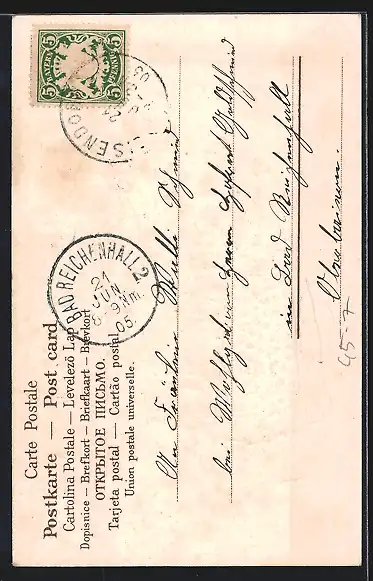 Carte Postale
Postkarte — Post card
Cartolina Postale — Levelező Lap
Dopisnice — Brefkort — Briefkaart — Brevkort
ОТКРЫТОЕ ПИСЬМО.
Tarjeta postal — Cartão postal
Union postale universelle.
BAYERN
5 5
5 5
BAD REICHENHALL 2.
21
JUN.
8-9 Nm.
05.
An Fräulein Milli Schmid
bei Herrn
in Bad Reichenhall
Oberbaiern.
45-7